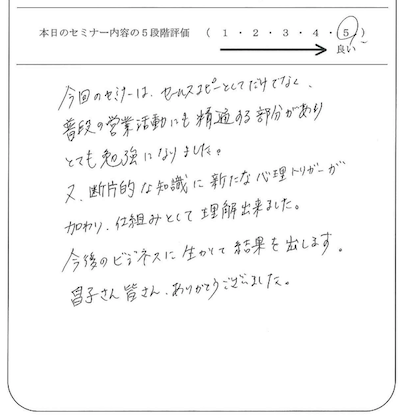 本日のセミナー内容の5段階評価 ( 1 ・ 2 ・ 3 ・ 4 ・ 5 )
良い
今回のセミナーは、セールスコピーとしてだけでなく、
普段の営業活動にも精通する部分があり
とても勉強になりました。
又、断片的な知識に新たな心理トリガーが
加わり、仕組みとして理解出来ました。
今後のビジネスに生かして結果を出します。
昌子さん皆さん、ありがとうございました。